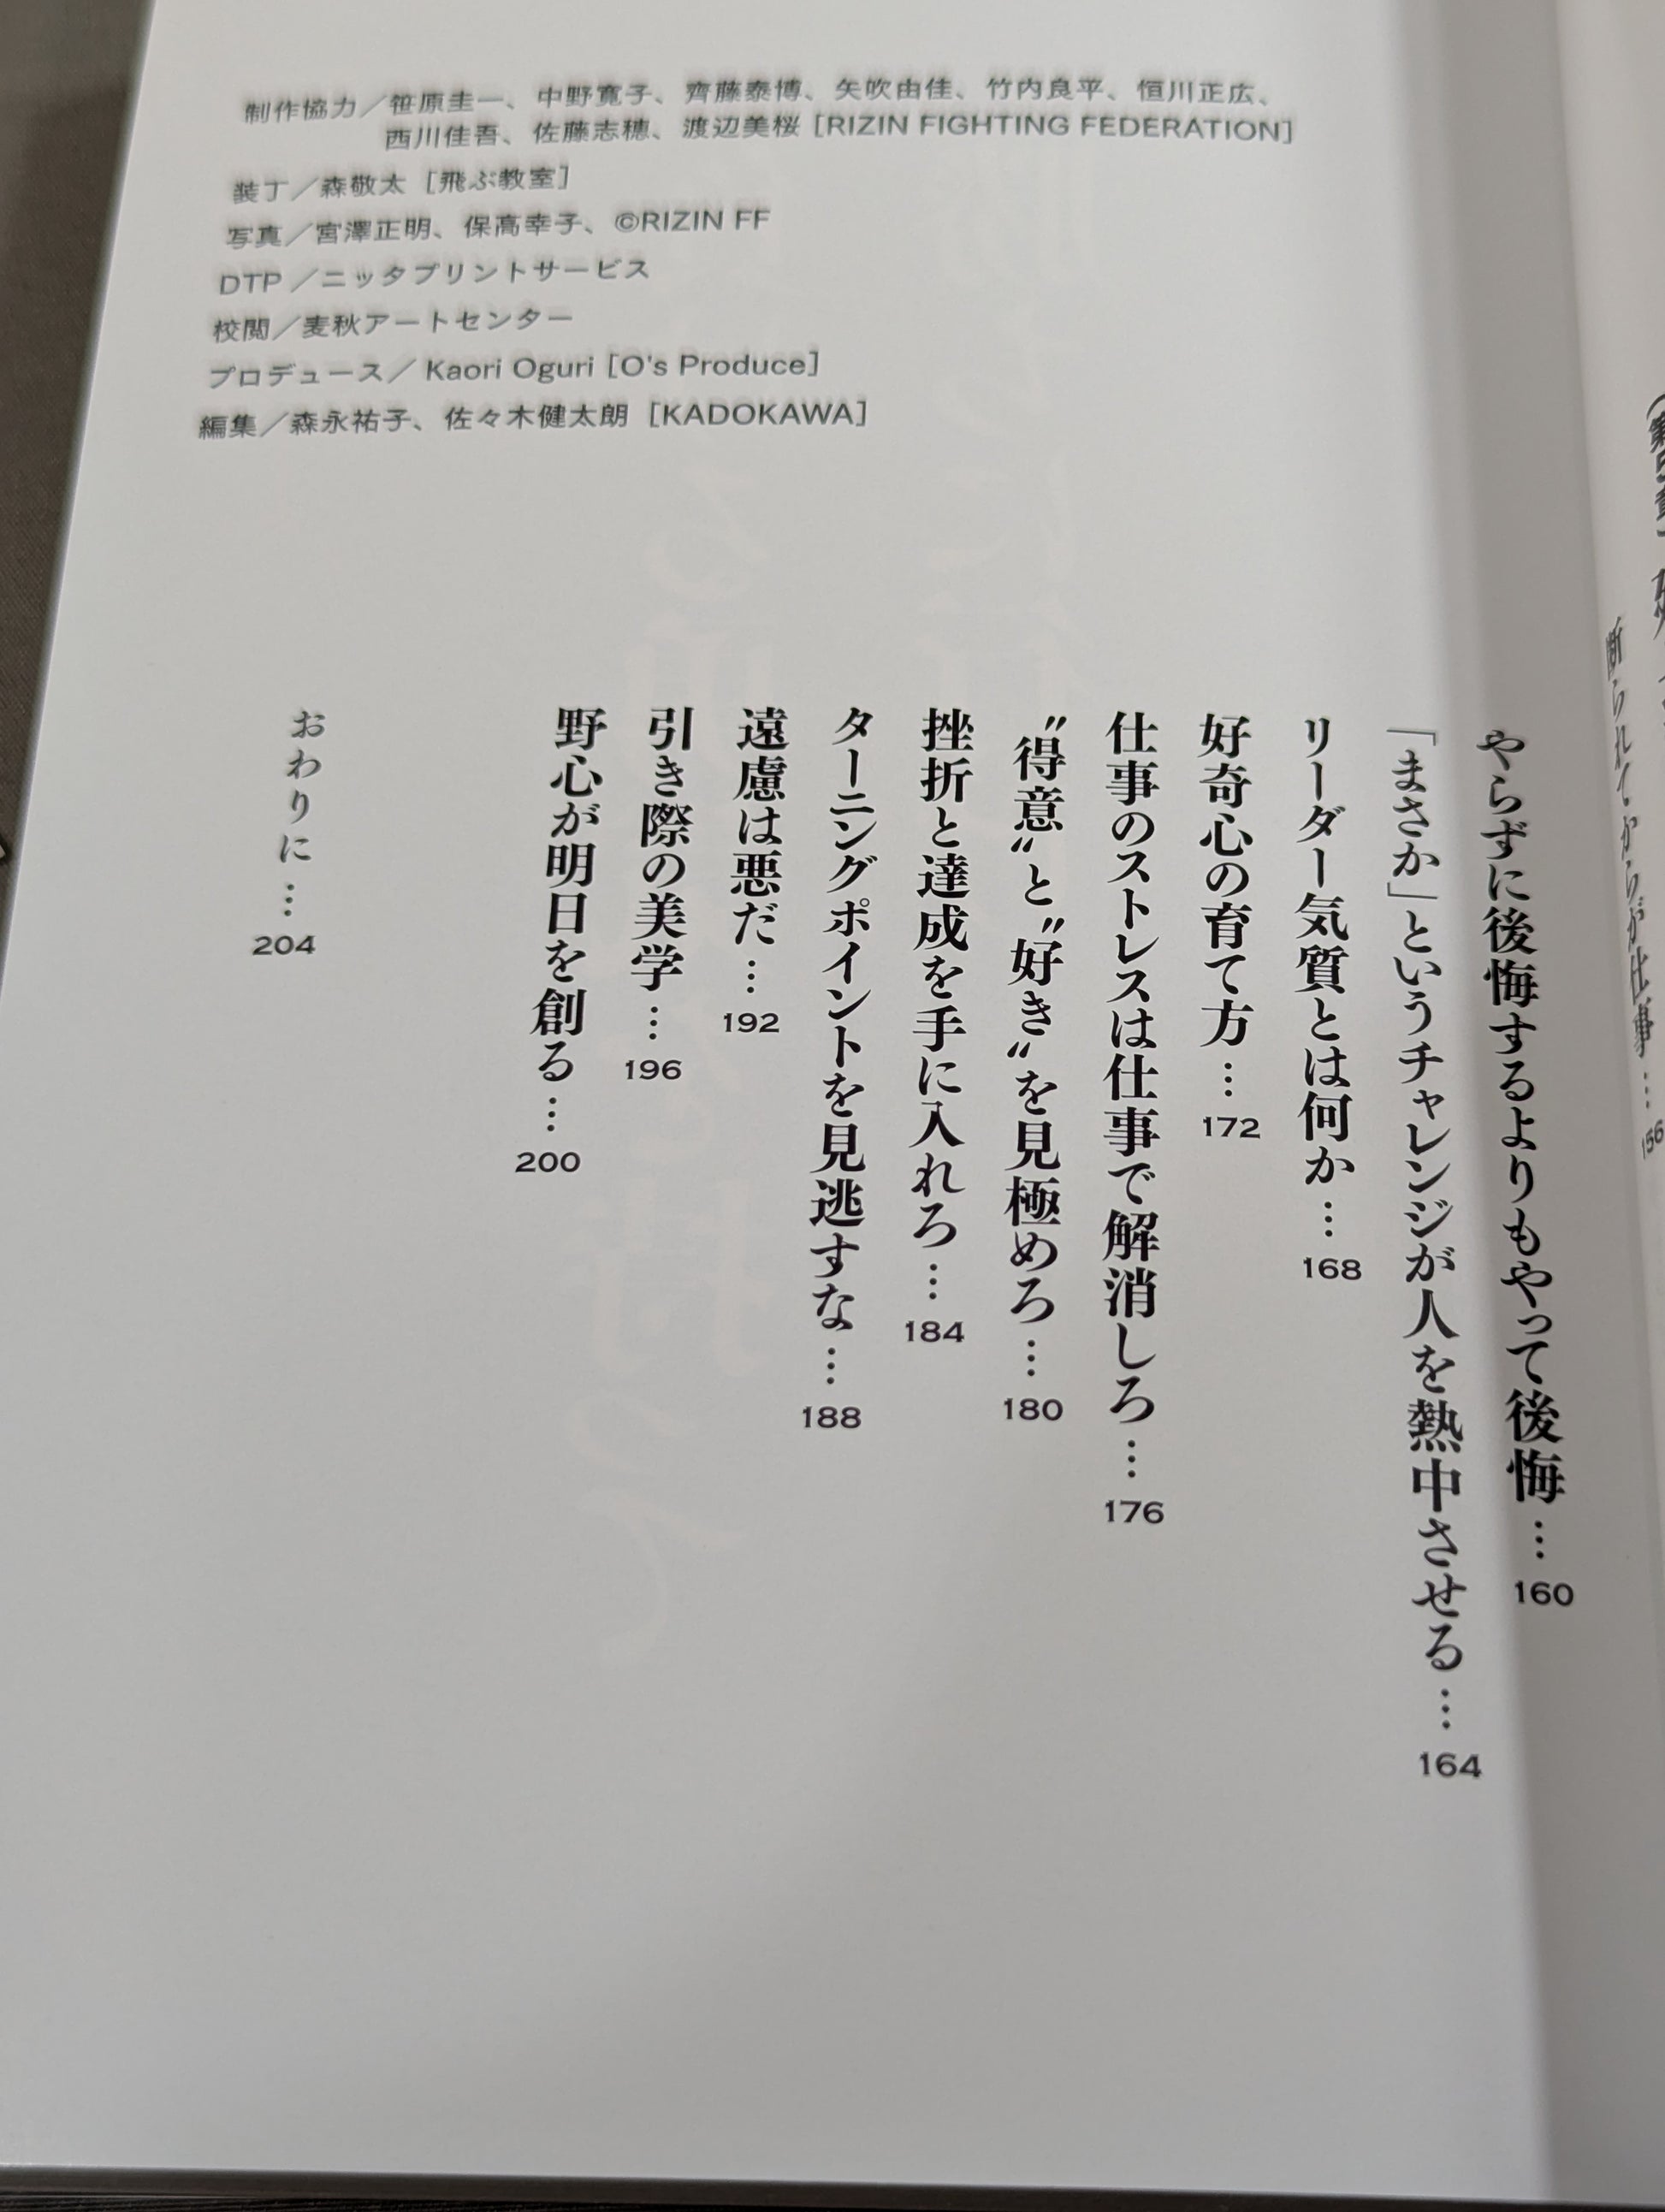 断られてからが仕事…156
やらずに後悔するよりもやって後悔…160
「まさか」というチャレンジが人を熱中させる…164
リーダー気質とは何か…168
好奇心の育て方…172
仕事のストレスは仕事で解消しろ…176
〝得意〟と〝好き〟を見極めろ…180
挫折と達成を手に入れろ…184
ターニングポイントを見逃すな…188
遠慮は悪だ…192
引き際の美学…196
野心が明日を創る…200
おわりに…204
制作協力／笹原圭一、中野寛子、齊藤泰博、矢吹由佳、竹内良平、恒川正広、
西川佳吾、佐藤志穂、渡辺美桜［RIZIN FIGHTING FEDERATION］
装丁／森敬太［飛ぶ教室］
写真／宮澤正明、保高幸子、©RIZIN FF
DTP／ニッタプリントサービス
校閲／麦秋アートセンター
プロデュース／Kaori Oguri［O's Produce］
編集／森永祐子、佐々木健太朗［KADOKAWA］